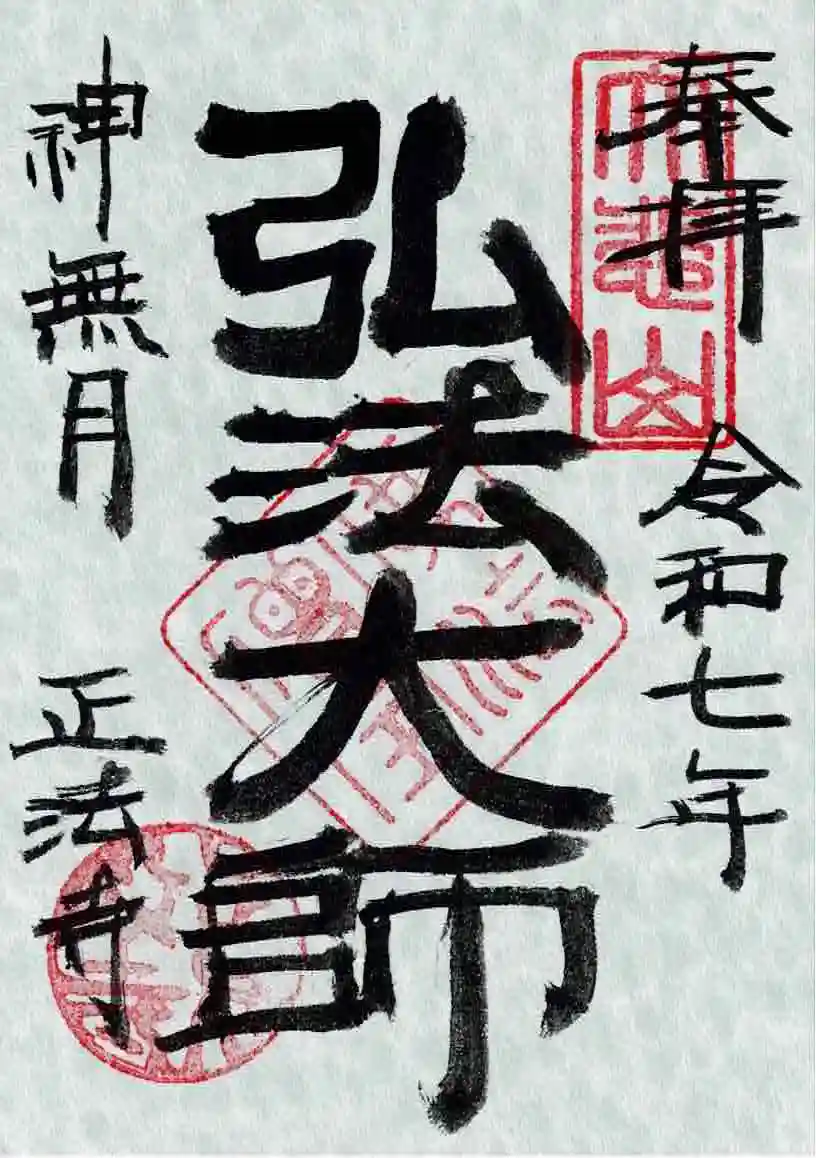 奉拝
令和七年
弘法大師
神無月
正法寺